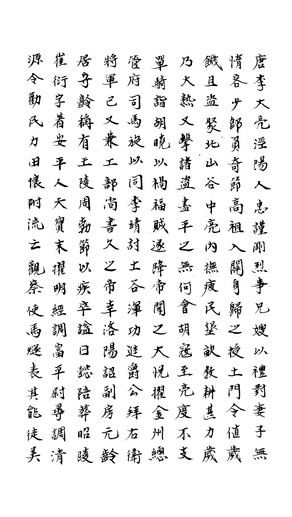 唐李大亮涇陽人忠謹剛烈事兄嫂以禮對妻子無
惰容少郎員奇節高祖入關自歸之授土門令值歲
饑且盜聚北山谷中亮內撫疲民墾畝敎耕甚力歲
乃大熟又擊諸盜盡平之無何會胡寇至亮度不支
單騎詣胡曉以禍福賊遂降帝聞之大悅擢金州總
管府司馬旋以同李靖討土谷渾功進爵公拜右衛
將軍已又兼工部尚書久之帝幸洛陽詔副房元齡
居守齡稱有王陵周勃節以疾卒諡曰懿陪葬昭陵
崔衍字著安平人天寶末擢明經調富平尉尋調清
源令勤民力田懷附流亡觀察使馬燧表其能徙美